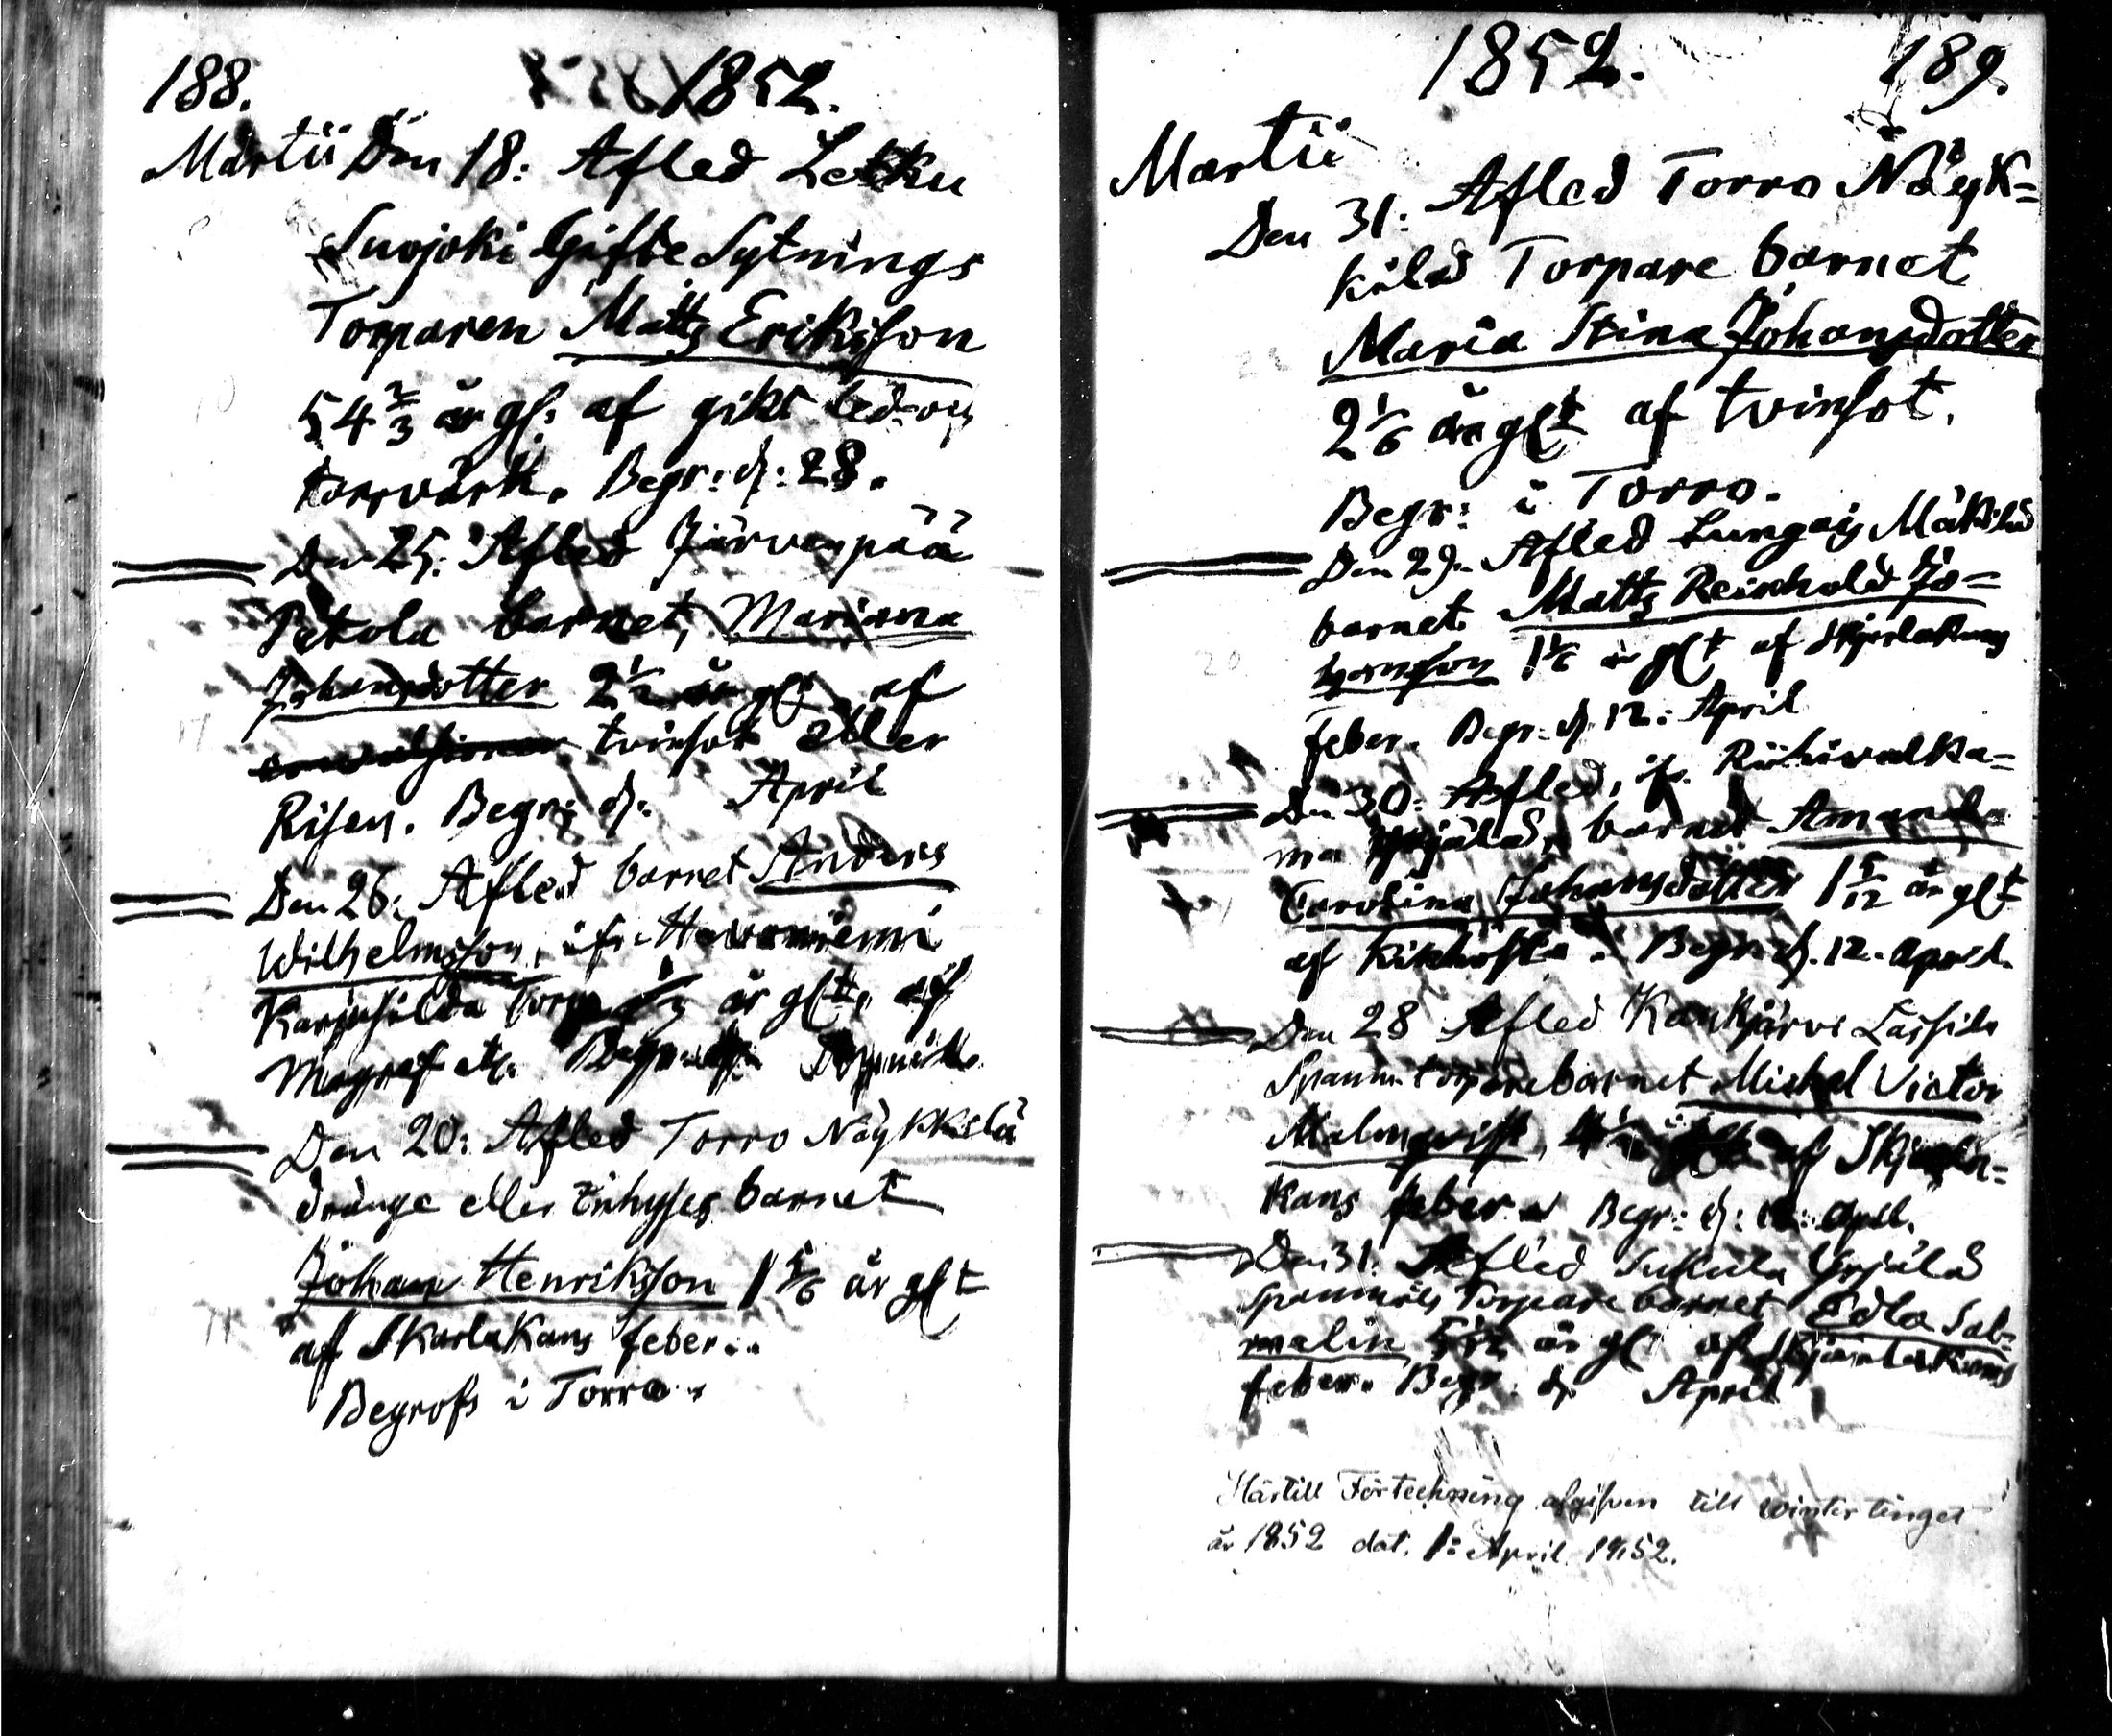 188. 1852.
Martii Den 18: Afled Letku
Suojoki Gifte Sytnings
Torparen Matts Eriksson
54 2/3 år gl: af gikt led- och
torrvärk. Begr: d: 28.
Den 25: Afled Järvenpää
Pätola barnet, Mariana
Johansdotter 2 1/2 år glt af
tvinsot eller
Risen. Begr: d: April
Den 26: Afled barnet Anders
Wilhelmsson, ifr.
Torp år glt, af
Magref etc.
Den 20: Afled Torro Näykkilä
dränge eller Inhyses barnet
Johan Henriksson 1 1/6 år glt
af Skarlakans feber..
Begrofs i Torro.
1852. 189.
Martii
Den 31: Afled Torro Näyk=
kilä Torpare barnet
Maria Stina Johansdotter
2 1/6 år glt af tvinsot.
Begr: i Torro.
Den 29. Afled Lungois Mäkilä
barnet Matts Reinhold Jo=
hansson 1 1/6 år glt af Skjerlakans
feber. Begr. d. 12: April
Den 30: Afled, if. Riihivalka=
ma Yrjälä, barnet Amanda
Carolina Johansdotter 1 5/12 år glt
af Kikhosta. Begr. d. 12. April.
Den 28 Afled Kaukjärvi Lassila
Spanm: torpare barnet Mickel Victor
Malmqvist, af Skjerla=
kans feber. Begr: d: 12: April.
Den 31. Afled Sukula Yrjälä
Torpare barnet Edla Sal=
malin år gl: af Skjärlakans
feber. Begr. d. April
Härtill Förteckning afgifven till Wintertinget
år 1852 dat. 1: April 1852.